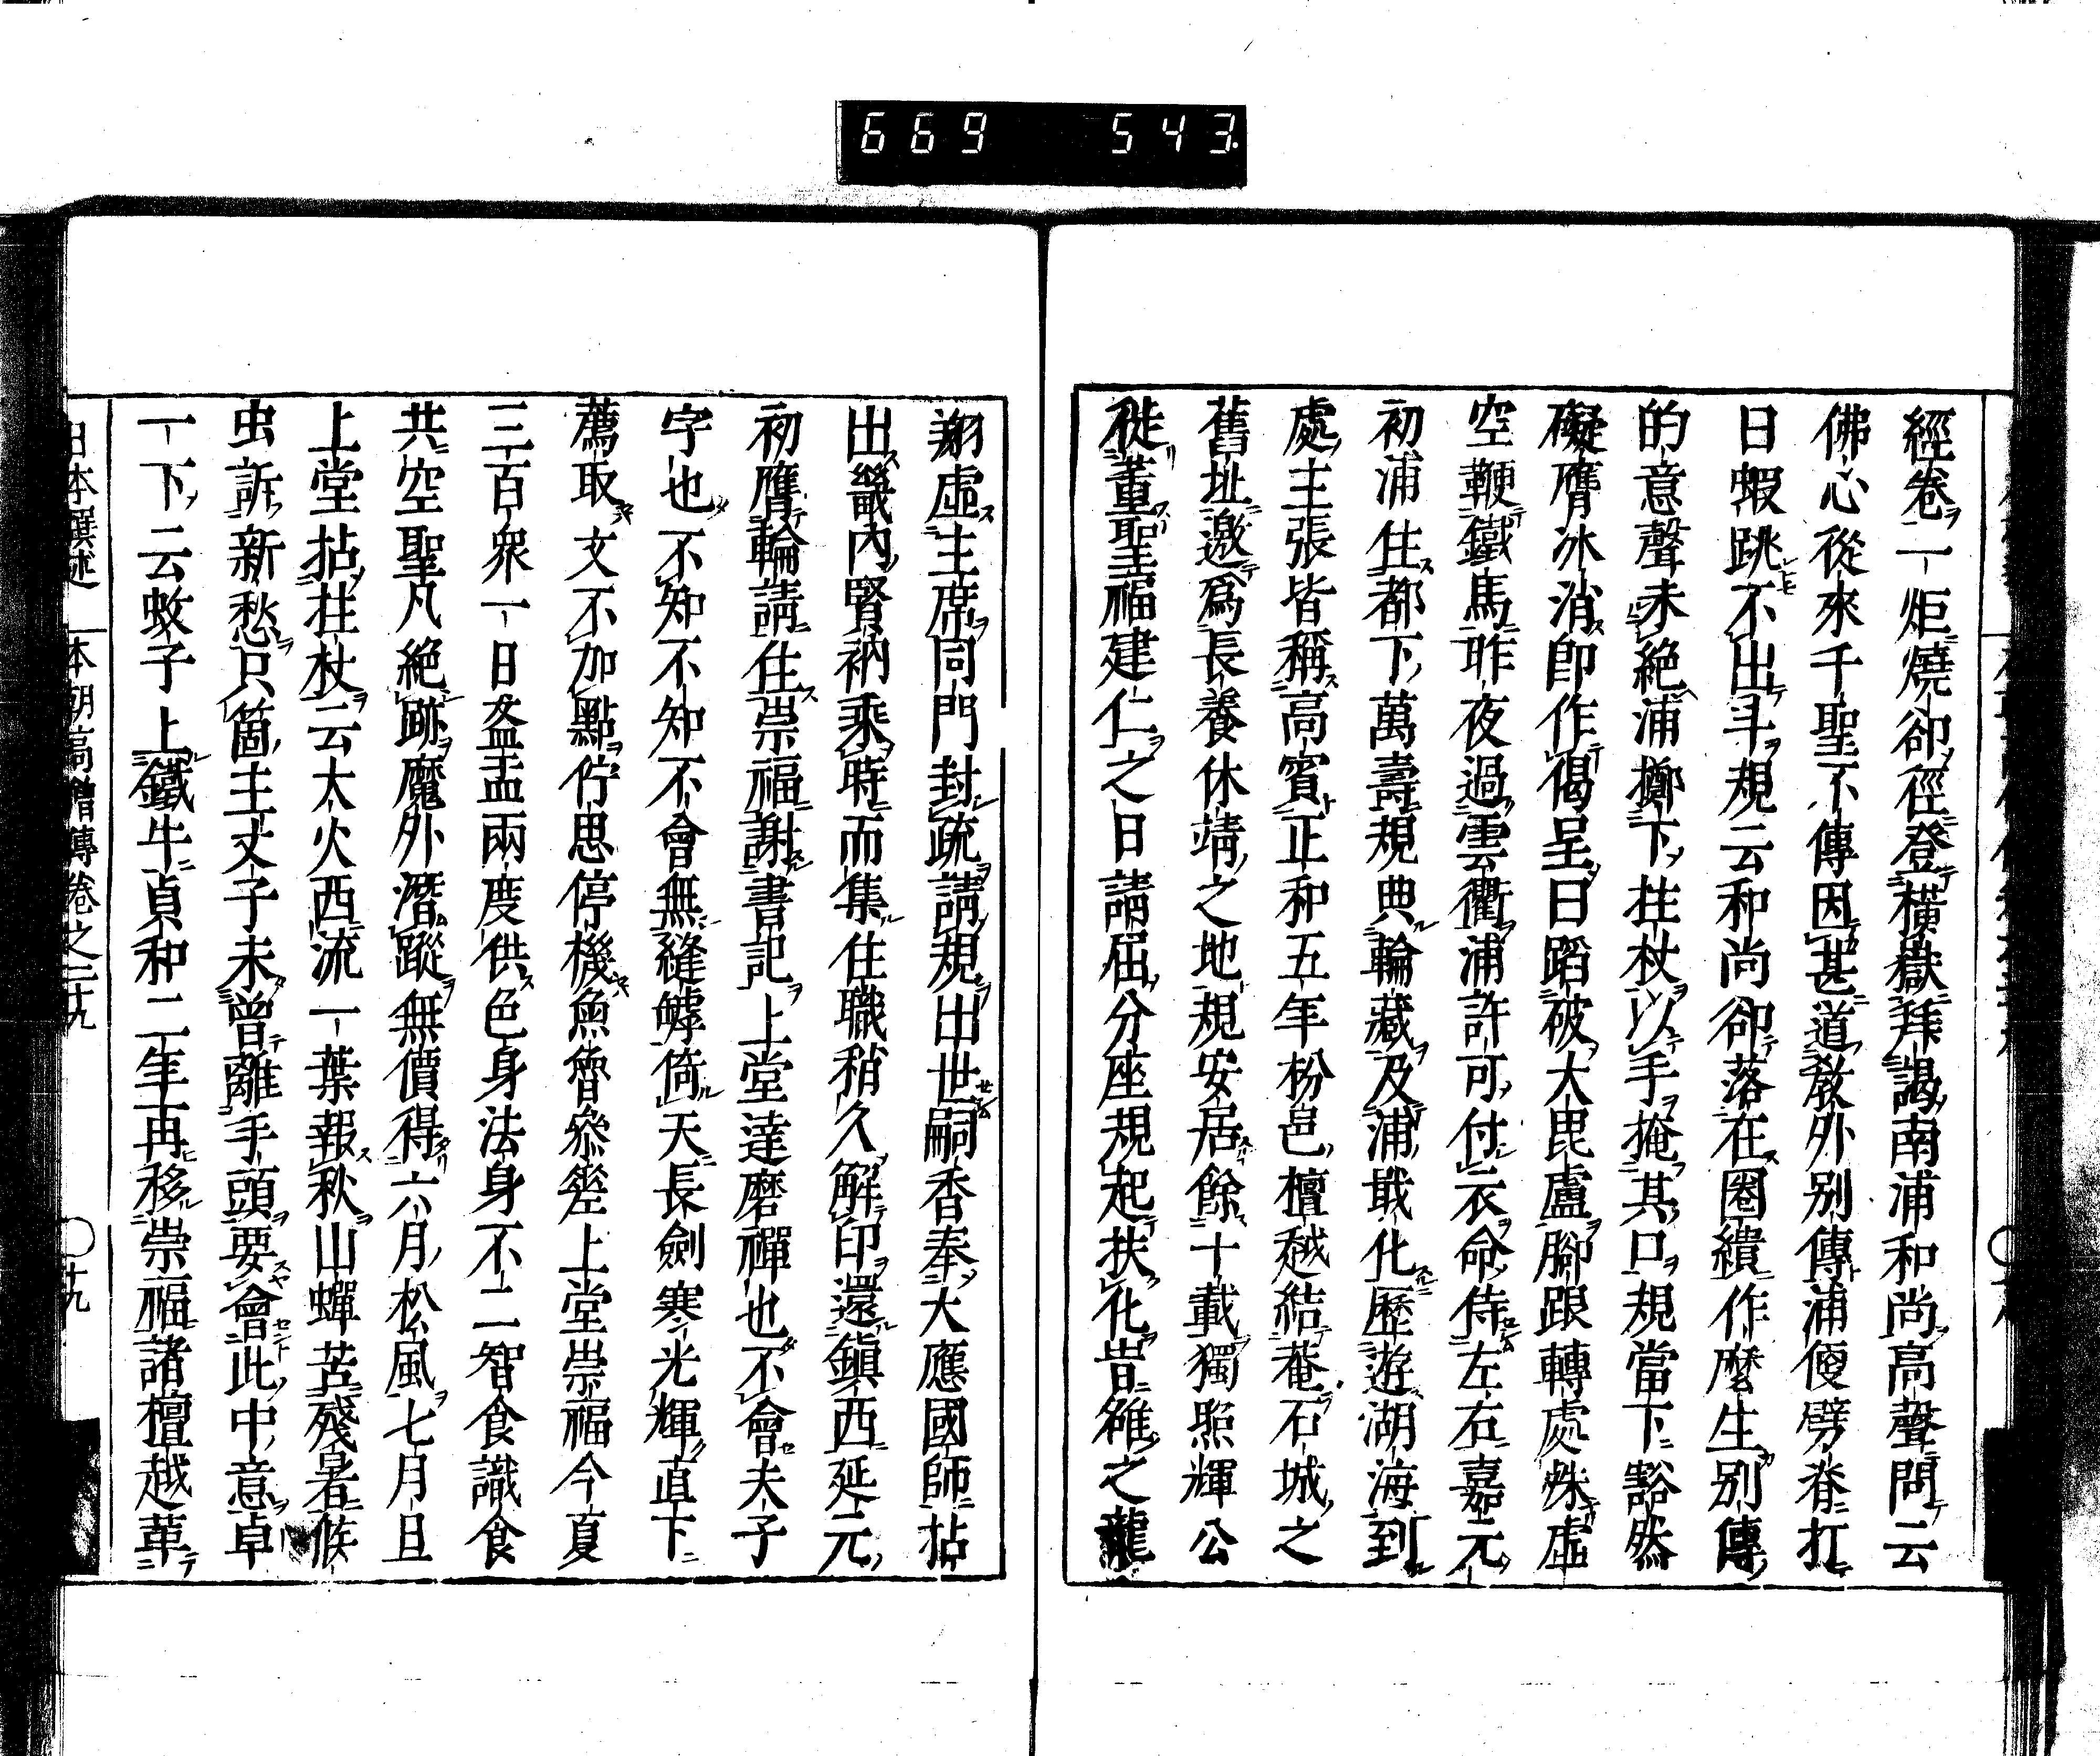 669 543
經卷一炬燒卻徑登橫嶽拜謁南浦和尚高聲問云
佛心從來千聖不傳因甚道敎外別傳浦便劈脊打
曰蝦跳不出斗規云和尚卻落在圈繢作麼生別傳
的意聲未絕浦擲下拄杖以手掩其口規當下豁然
礙膺冰消卽作偈呈曰蹈破大毘盧腳跟轉處姝虛
空鞭鐵馬昨夜過雲衢浦許可付衣命侍左右嘉元
初浦住都下萬壽規典輪藏及浦戢化歷遊湖海到
處主張皆稱高賓正和五年枌邑檀越結菴石城之
舊址邀爲長養休靖之地規安居餘十載獨照輝公
徙董聖福建仁之日請屈分座規起扶化旹雒之龍
翔虛主席同門封疏請規出世嗣香奉大應國師拈
出畿內賢衲乘時而集住職稍久解印還鎭西延元
初膺輪請住崇福謝書記上堂達磨禪也不會夫子
字也不知不知不會無縫罅倚天長劍寒光輝直下
薦取文不加點佇思停機魚魯參差上堂崇福今夏
三百衆一日盔盂兩度供色身法身不二智食識食
共空聖凡絕跡魔外潛蹤無價得六月松風七月旦
上堂拈拄杖云大火西流一葉報秋山蟬苦殘暑候
虫訴新愁只箇主丈子未曾離手頭要會此中意卓
一下云蚊子上鐵牛貞和二年再移崇福諸檀越革
日本撰述 本朝高僧傳卷之二十九 〇十九